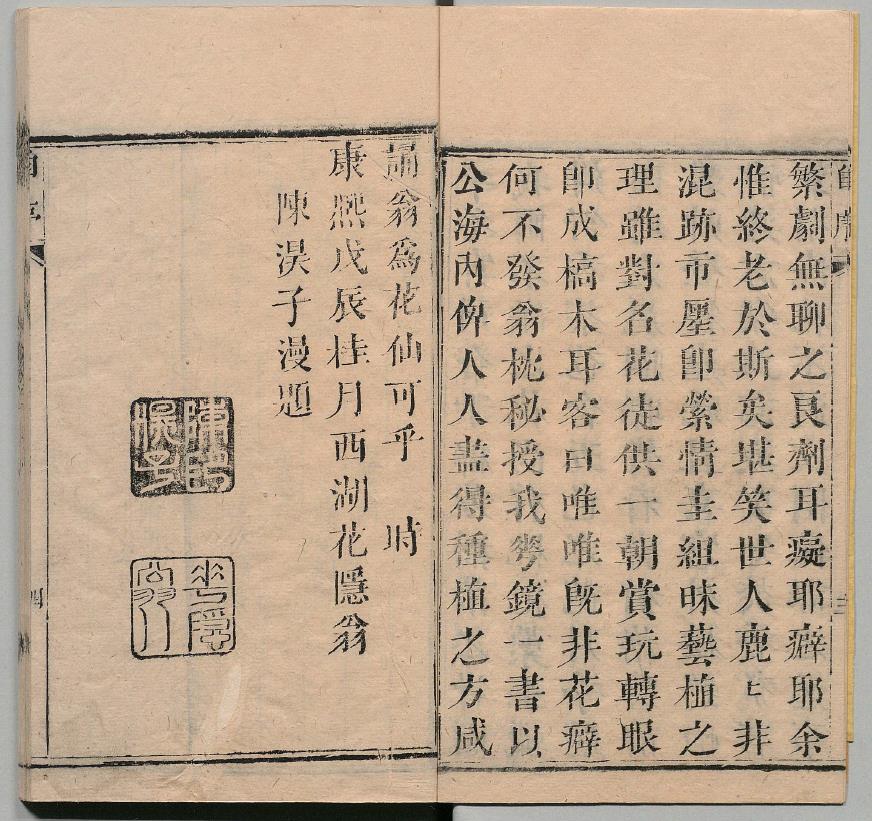 自序
繁劇無聊之良劑耳癡耶癖耶余
惟終老於斯矣堪笑世人鹿〻非
混跡市廛卽縈情圭組昧藝植之
理雖對名花徒供一朝賞玩轉眼
卽成槁木耳客曰唯唯旣非花癖
何不發翁枕秘授我花鏡一書以
公海內俾人人盡得種植之方咸
謂翁爲花仙可乎　時
康熙戊辰桂月西湖花隱翁
陳淏子漫題
陳印
淏子